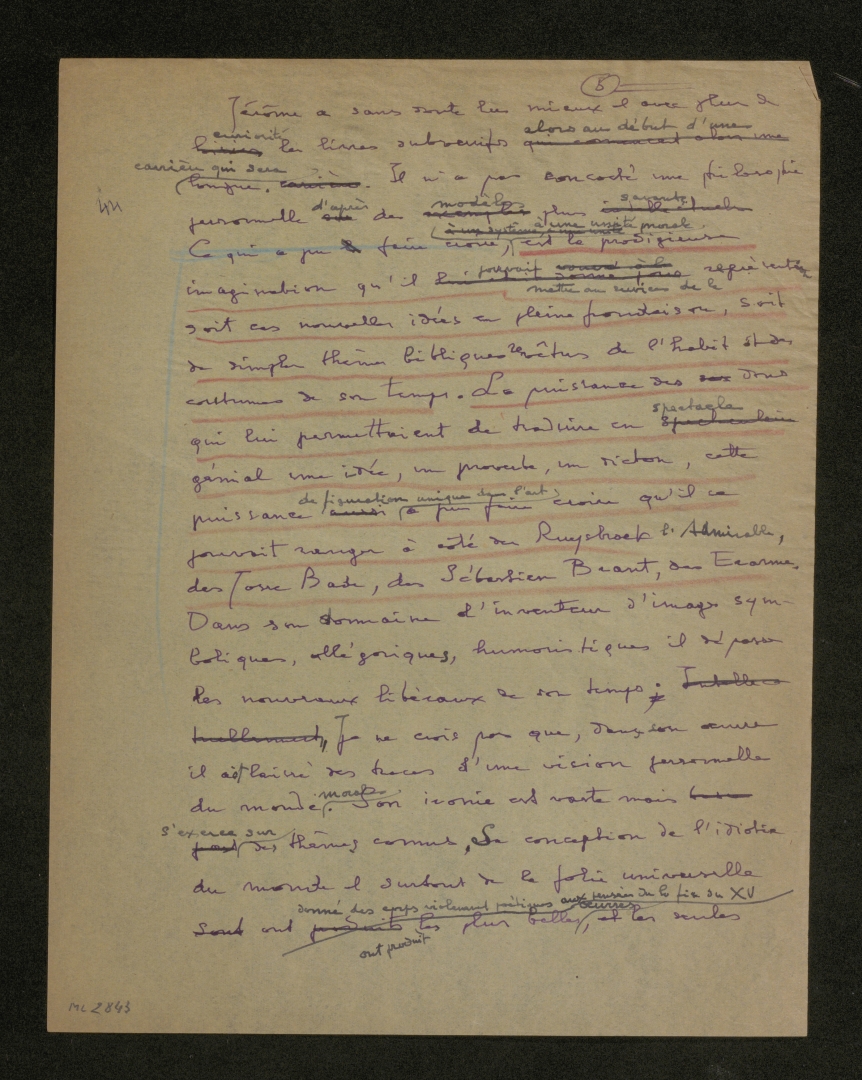 5
Jérôme a sans doute lu mieux et avec plus de
curiosité les livres subversifs alors au début d'une
qui commençait alors une
carrière qui sera
longue. carrière. Il n'a pas concocté une philosophie
personnelle d'après des modèles plus savants
exemples
à une unité morale.
Ce qui a pu faire croire, est la prodigieuse
imagination qu'il pouvait représenter
mettre au service de la
soit ces nouvelles idées en pleine frondaison, soit
de simples thèmes bibliques revêtus de l'habit et des
costumes de son temps. La puissance des dons
qui lui permettaient de traduire en spectacle
spectaculaire
génial une idée, un proverbe, un dicton, cette
de figuration unique dans l'art
puissance aussi a pu faire croire qu'il se
pouvait ranger à côté des Ruysbroek l'Admirable,
des Josse Bade, des Sébastien Brant, des Erasme.
Dans son domaine d'inventeur d'images sym-
boliques, allégoriques, humoristiques il dépasse
les nouveaux libéraux de son temps ; Intellec
tuellement, Je ne crois pas que, dans son œuvre
il ait laissé des traces d'une vision personnelle
du monde moral. Son ironie est vaste mais
s'exerce sur
des thèmes connus, Sa conception de l'idiotie
du monde et surtout de la folie universelle
donné des corps violemment poétiques aux pensées de la fin du XV
œuvres
sont ont produits les plus belles, et les seules
ont produit
ML 2843